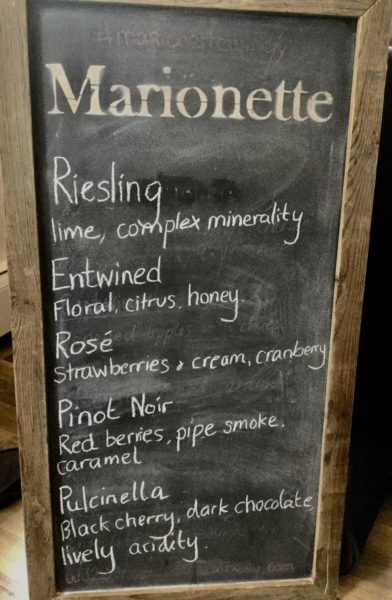 #marionettewinery
Marionette
Riesling
lime, complex minerality
Entwined
Floral, citrus, honey.
Rosé
Strawberries & cream, cranberry
Pinot Noir
Red berries, pipe smoke.
caramel
Pulcinella
Black cherry, dark chocolate,
lively acidity.